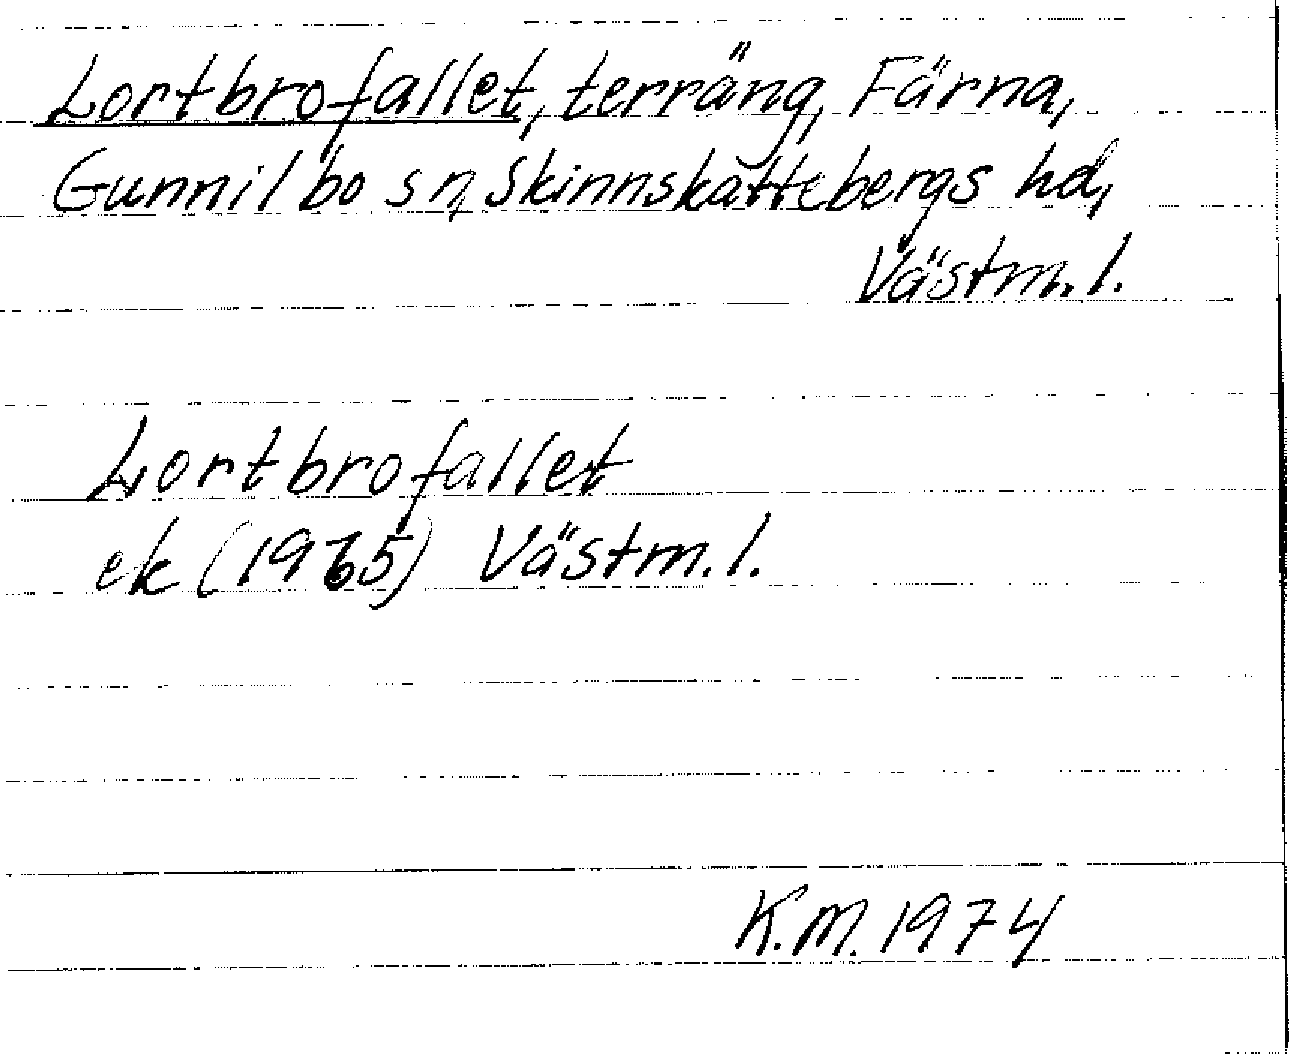 Lortbrofallet, terräng, Färna,
Gunnilbo sn, Skinnskattebergs hd,
Västm. l.
Lortbrofallet
ek (1965) Västm. l.
K.M. 1974